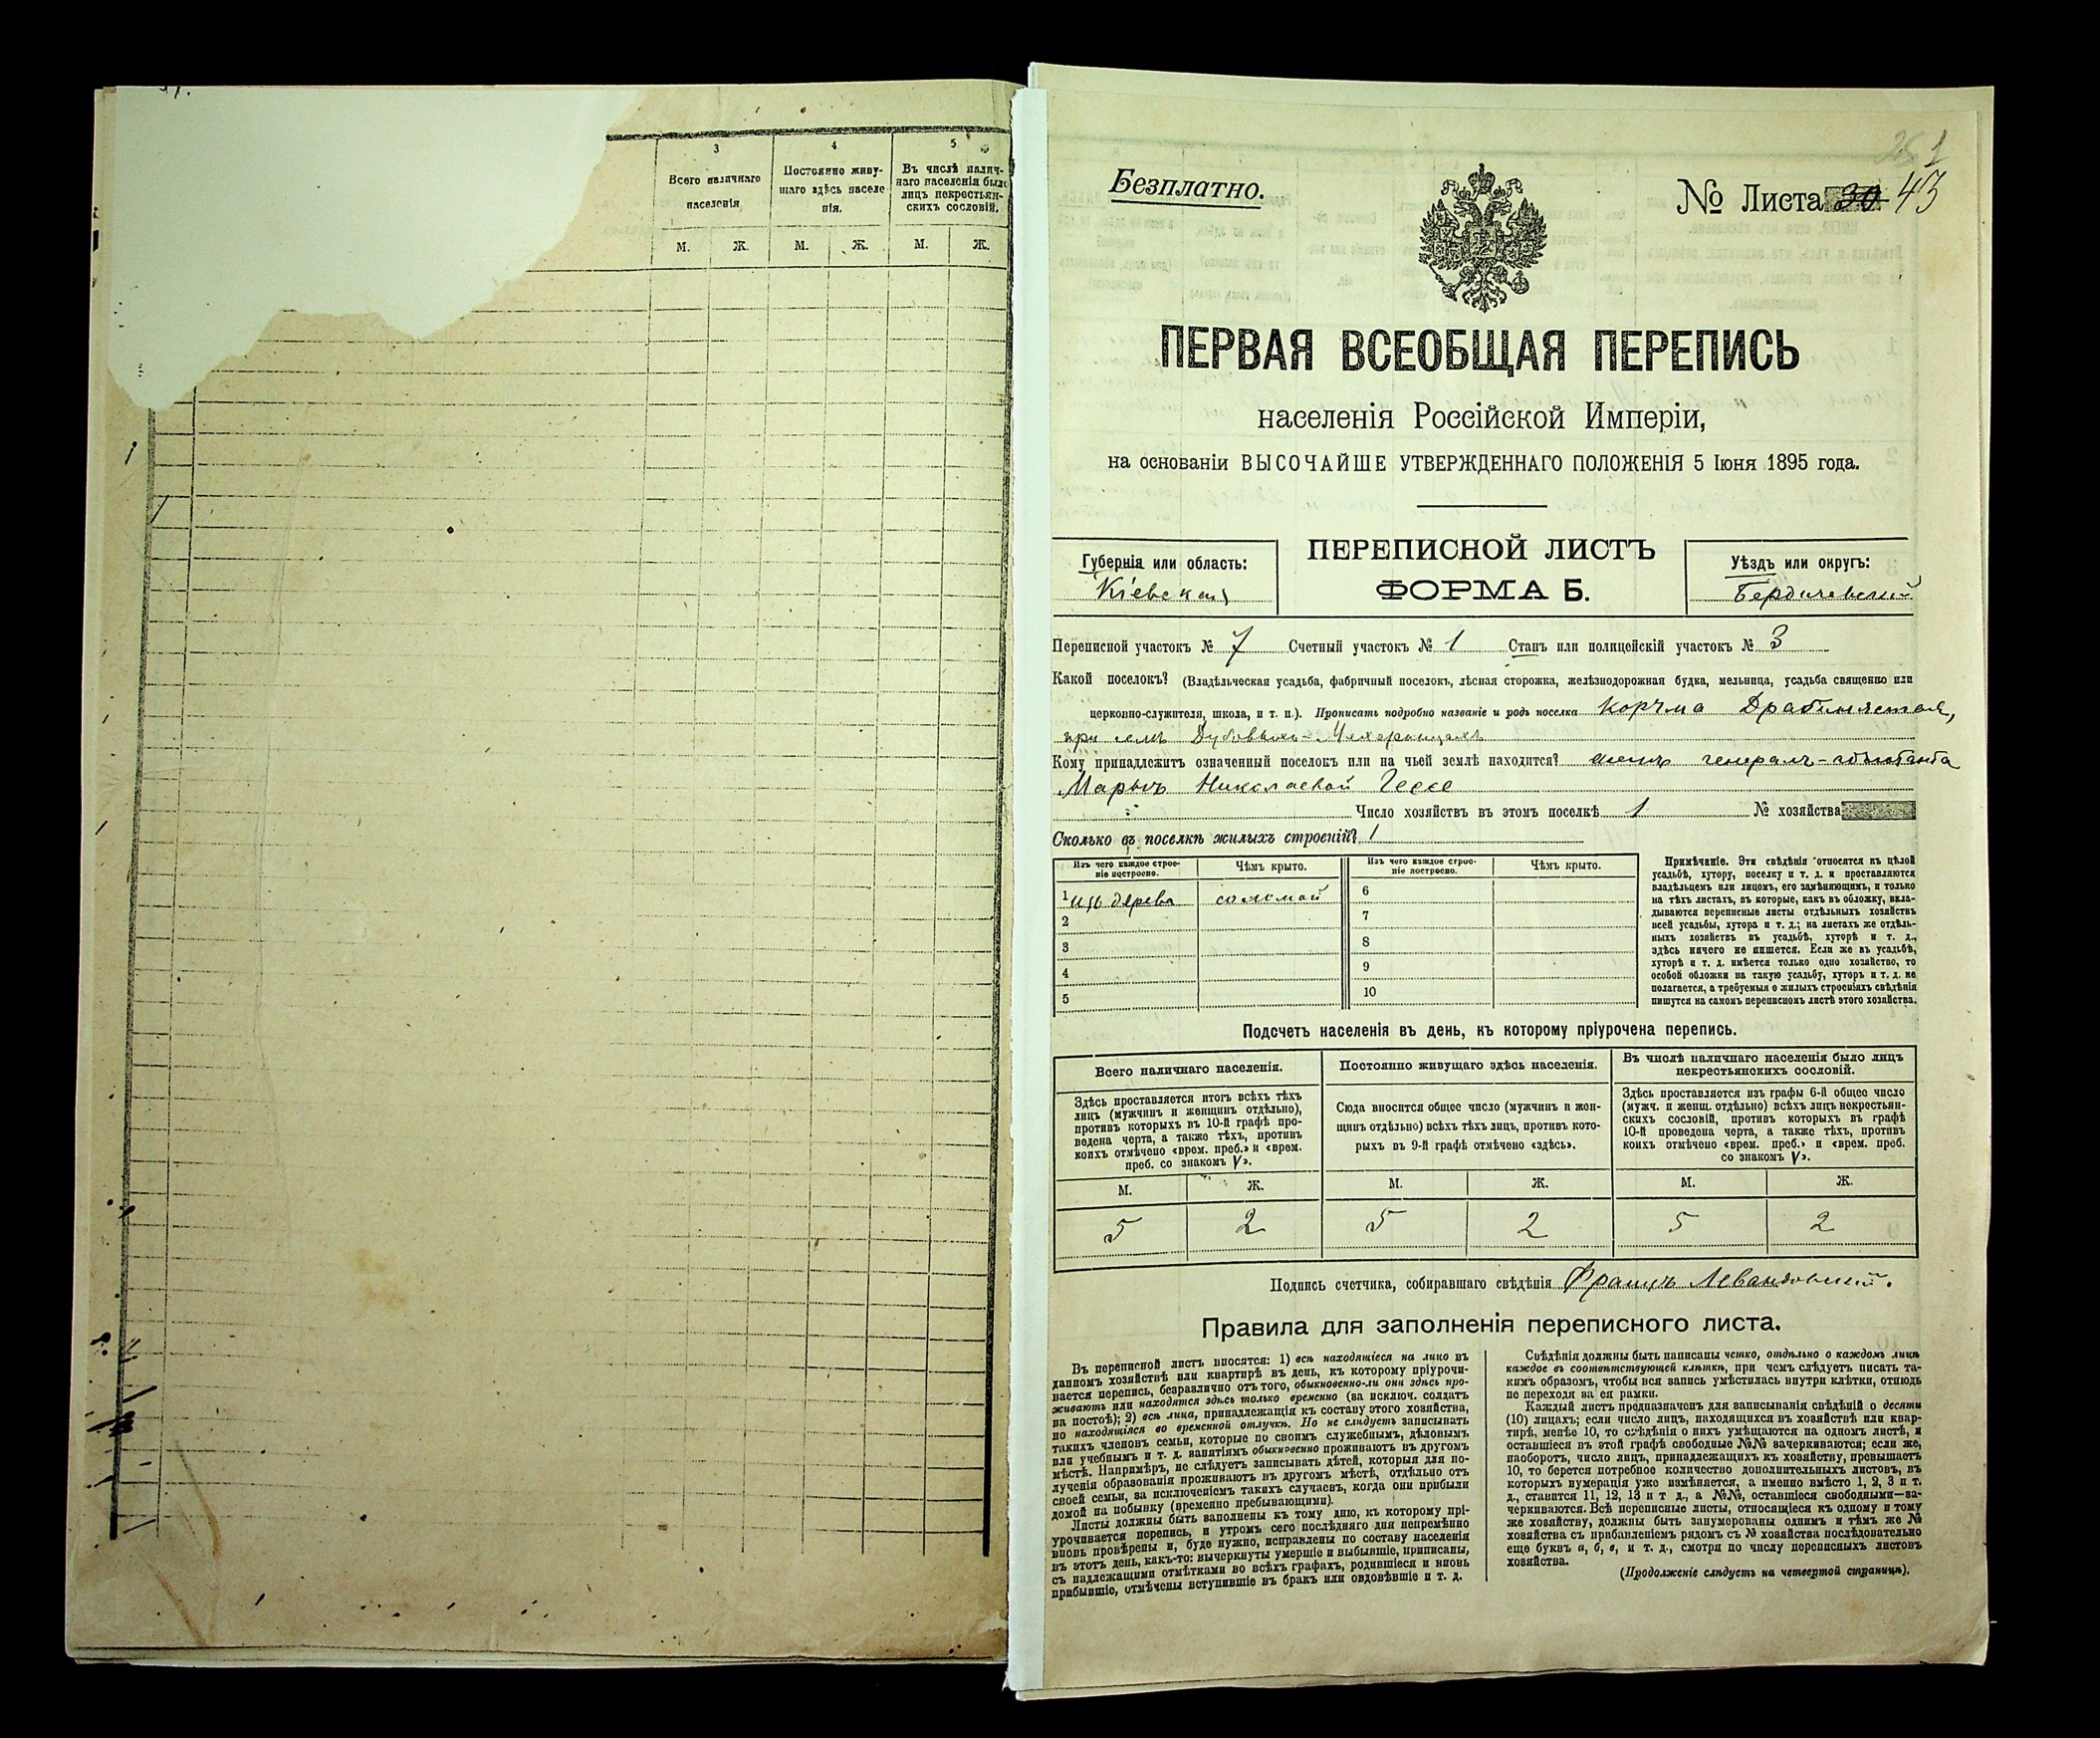 3
4
5
Всего наличнаго
населенія
Постоянно живу-
щаго здѣсь населе
нія.
Въ числѣ налич-
наго населенія было
лицъ некрестьян-
скихъ сословій.
М. Ж. М. Ж. М. Ж.
1
Безплатно.
№ Листа 30 43
ПЕРВАЯ ВСЕОБЩАЯ ПЕРЕПИСЬ
населенія Россійской Имперіи,
на основаніи ВЫСОЧАЙШЕ УТВЕРЖДЕННАГО ПОЛОЖЕНІЯ 5 Іюня 1895 года.
Губернія или область:
Кіевская
ПЕРЕПИСНОЙ ЛИСТЪ
ФОРМА Б.
Уѣздъ или округъ:
Бердичевскій
Переписной участокъ № 7 Счетный участокъ № 1 Станъ или полицейскій участокъ № 3
Какой поселокъ? (Владѣльческая усадьба, фабричный поселокъ, лѣсная сторожка, желѣзнодорожная будка, мельница, усадьба священно или
церковно-служителя, школа, и т. п.). Прописать подробно названіе и родъ поселка Корчма
при селѣ Дубовыхъ-Махаринцахъ
Кому принадлежитъ означенный поселокъ или на чьей землѣ находится? женѣ генералъ-адъютанта
Марьѣ Николаевой Гессе
Число хозяйствъ въ этомъ поселкѣ 1 № хозяйства
Сколько въ поселкѣ жилыхъ строеній? 1
Изъ чего каждое строе-
ніе построено.
Чѣмъ крыто.
Изъ чего каждое строе-
ніе построено.
Чѣмъ крыто.
1 изъ дерева соломой 6
2 7
3 8
4 9
5 10
Примѣчаніе. Эти свѣдѣнія относятся къ цѣлой
усадьбѣ, хутору, поселку и т. д. и проставляются
владѣльцемъ или лицомъ, его замѣняющимъ, и только
на тѣхъ листахъ, въ которые, какъ въ обложку, вкла-
дываются переписные листы отдѣльныхъ хозяйствъ
всей усадьбы, хутора и т. д.; на листахъ же отдѣль-
ныхъ хозяйствъ въ усадьбѣ, хуторѣ и т. д.,
здѣсь ничего не пишется. Если же въ усадьбѣ,
хуторѣ и т. д. имѣется только одно хозяйство, то
особой обложки на такую усадьбу, хуторъ и т. д. не
полагается, а требуемыя о жилыхъ строеніяхъ свѣдѣнія
пишутся на самомъ переписномъ листѣ этого хозяйства.
Подсчетъ населенія въ день, къ которому пріурочена перепись.
Всего наличнаго населенія.
Постоянно живущаго здѣсь населенія.
Въ числѣ наличнаго населенія было лицъ
некрестьянскихъ сословій.
Здѣсь проставляется итогъ всѣхъ тѣхъ
лицъ (мужчинъ и женщинъ отдѣльно),
противъ которыхъ въ 10-й графѣ про-
ведена черта, а также тѣхъ, противъ
коихъ отмѣчено «врем. преб.» и «врем.
преб. со знакомъ V».
Сюда вносится общее число (мужчинъ и жен-
щинъ отдѣльно) всѣхъ тѣхъ лицъ, противъ кото-
рыхъ въ 9-й графѣ отмѣчено «здѣсь».
Здѣсь проставляется изъ графы 6-й общее число
(мужч. и женщ. отдѣльно) всѣхъ лицъ некрестьян-
скихъ сословій, противъ которыхъ въ графѣ
10-й проведена черта, а также тѣхъ, противъ
коихъ отмѣчено «врем. преб.» и «врем. преб.
со знакомъ V».
М. Ж. М. Ж. М. Ж.
5 2 5 2 5 2
Подпись счетчика, собиравшаго свѣдѣнія Францъ Левандовскій.
Правила для заполненія переписного листа.
Въ переписной листъ вносятся: 1) всѣ находящіеся на лицо въ
данномъ хозяйствѣ или квартирѣ въ день, къ которому пріурочи-
вается перепись, безразлично отъ того, обыкновенно-ли они здѣсь про-
живаютъ или находятся здѣсь только временно (за исключ. солдатъ
на постоѣ); 2) всѣ лица, принадлежащія къ составу этого хозяйства,
но находящіяся во временной отлучкѣ. Но не слѣдуетъ записывать
такихъ членовъ семьи, которые по своимъ служебнымъ, дѣловымъ
или учебнымъ и т. д. занятіямъ обыкновенно проживаютъ въ другомъ
мѣстѣ. Напримѣръ, не слѣдуетъ записывать дѣтей, которыя для по-
лученія образованія проживаютъ въ другомъ мѣстѣ, отдѣльно отъ
своей семьи, за исключеніемъ такихъ случаевъ, когда они прибыли
домой на побывку (временно пребывающими).
Листы должны быть заполнены къ тому дню, къ которому прі-
урочивается перепись, и утромъ сего послѣдняго дня непремѣнно
вновь провѣрены и, буде нужно, исправлены по составу населенія
въ этотъ день, какъ-то: вычеркнуты умершіе и выбывшіе, приписаны,
съ надлежащими отмѣтками во всѣхъ графахъ, родившіеся и вновь
прибывшіе, отмѣчены вступившіе въ бракъ или овдовѣвшіе и т. д.
Свѣдѣнія должны быть написаны четко, отдѣльно о каждомъ лицѣ
каждое въ соотвѣтствующей клѣткѣ, при чемъ слѣдуетъ писать та-
кимъ образомъ, чтобы вся запись умѣстилась внутри клѣтки, отнюдь
не переходя за ея рамки.
Каждый листъ предназначенъ для записыванія свѣдѣній о десяти
(10) лицахъ; если число лицъ, находящихся въ хозяйствѣ или квар-
тирѣ, менѣе 10, то свѣдѣнія о нихъ умѣщаются на одномъ листѣ, и
оставшіеся въ этой графѣ свободные №№ зачеркиваются; если же,
наоборотъ, число лицъ, принадлежащихъ къ хозяйству, превышаетъ
10, то берется потребное количество дополнительныхъ листовъ, въ
которыхъ нумерація уже измѣняется, а именно вмѣсто 1, 2, 3 и т.
д., ставится 11, 12, 13 и т д., а №№, оставшіеся свободными—за-
черкиваются. Всѣ переписные листы, относящіеся къ одному и тому
же хозяйству, должны быть занумерованы однимъ и тѣмъ же №
хозяйства съ прибавленіемъ рядомъ съ № хозяйства послѣдовательно
еще буквъ а, б, в, и т. д., смотря по числу переписныхъ листовъ
хозяйства.
(Продолженіе слѣдуетъ на четвертой страницѣ).